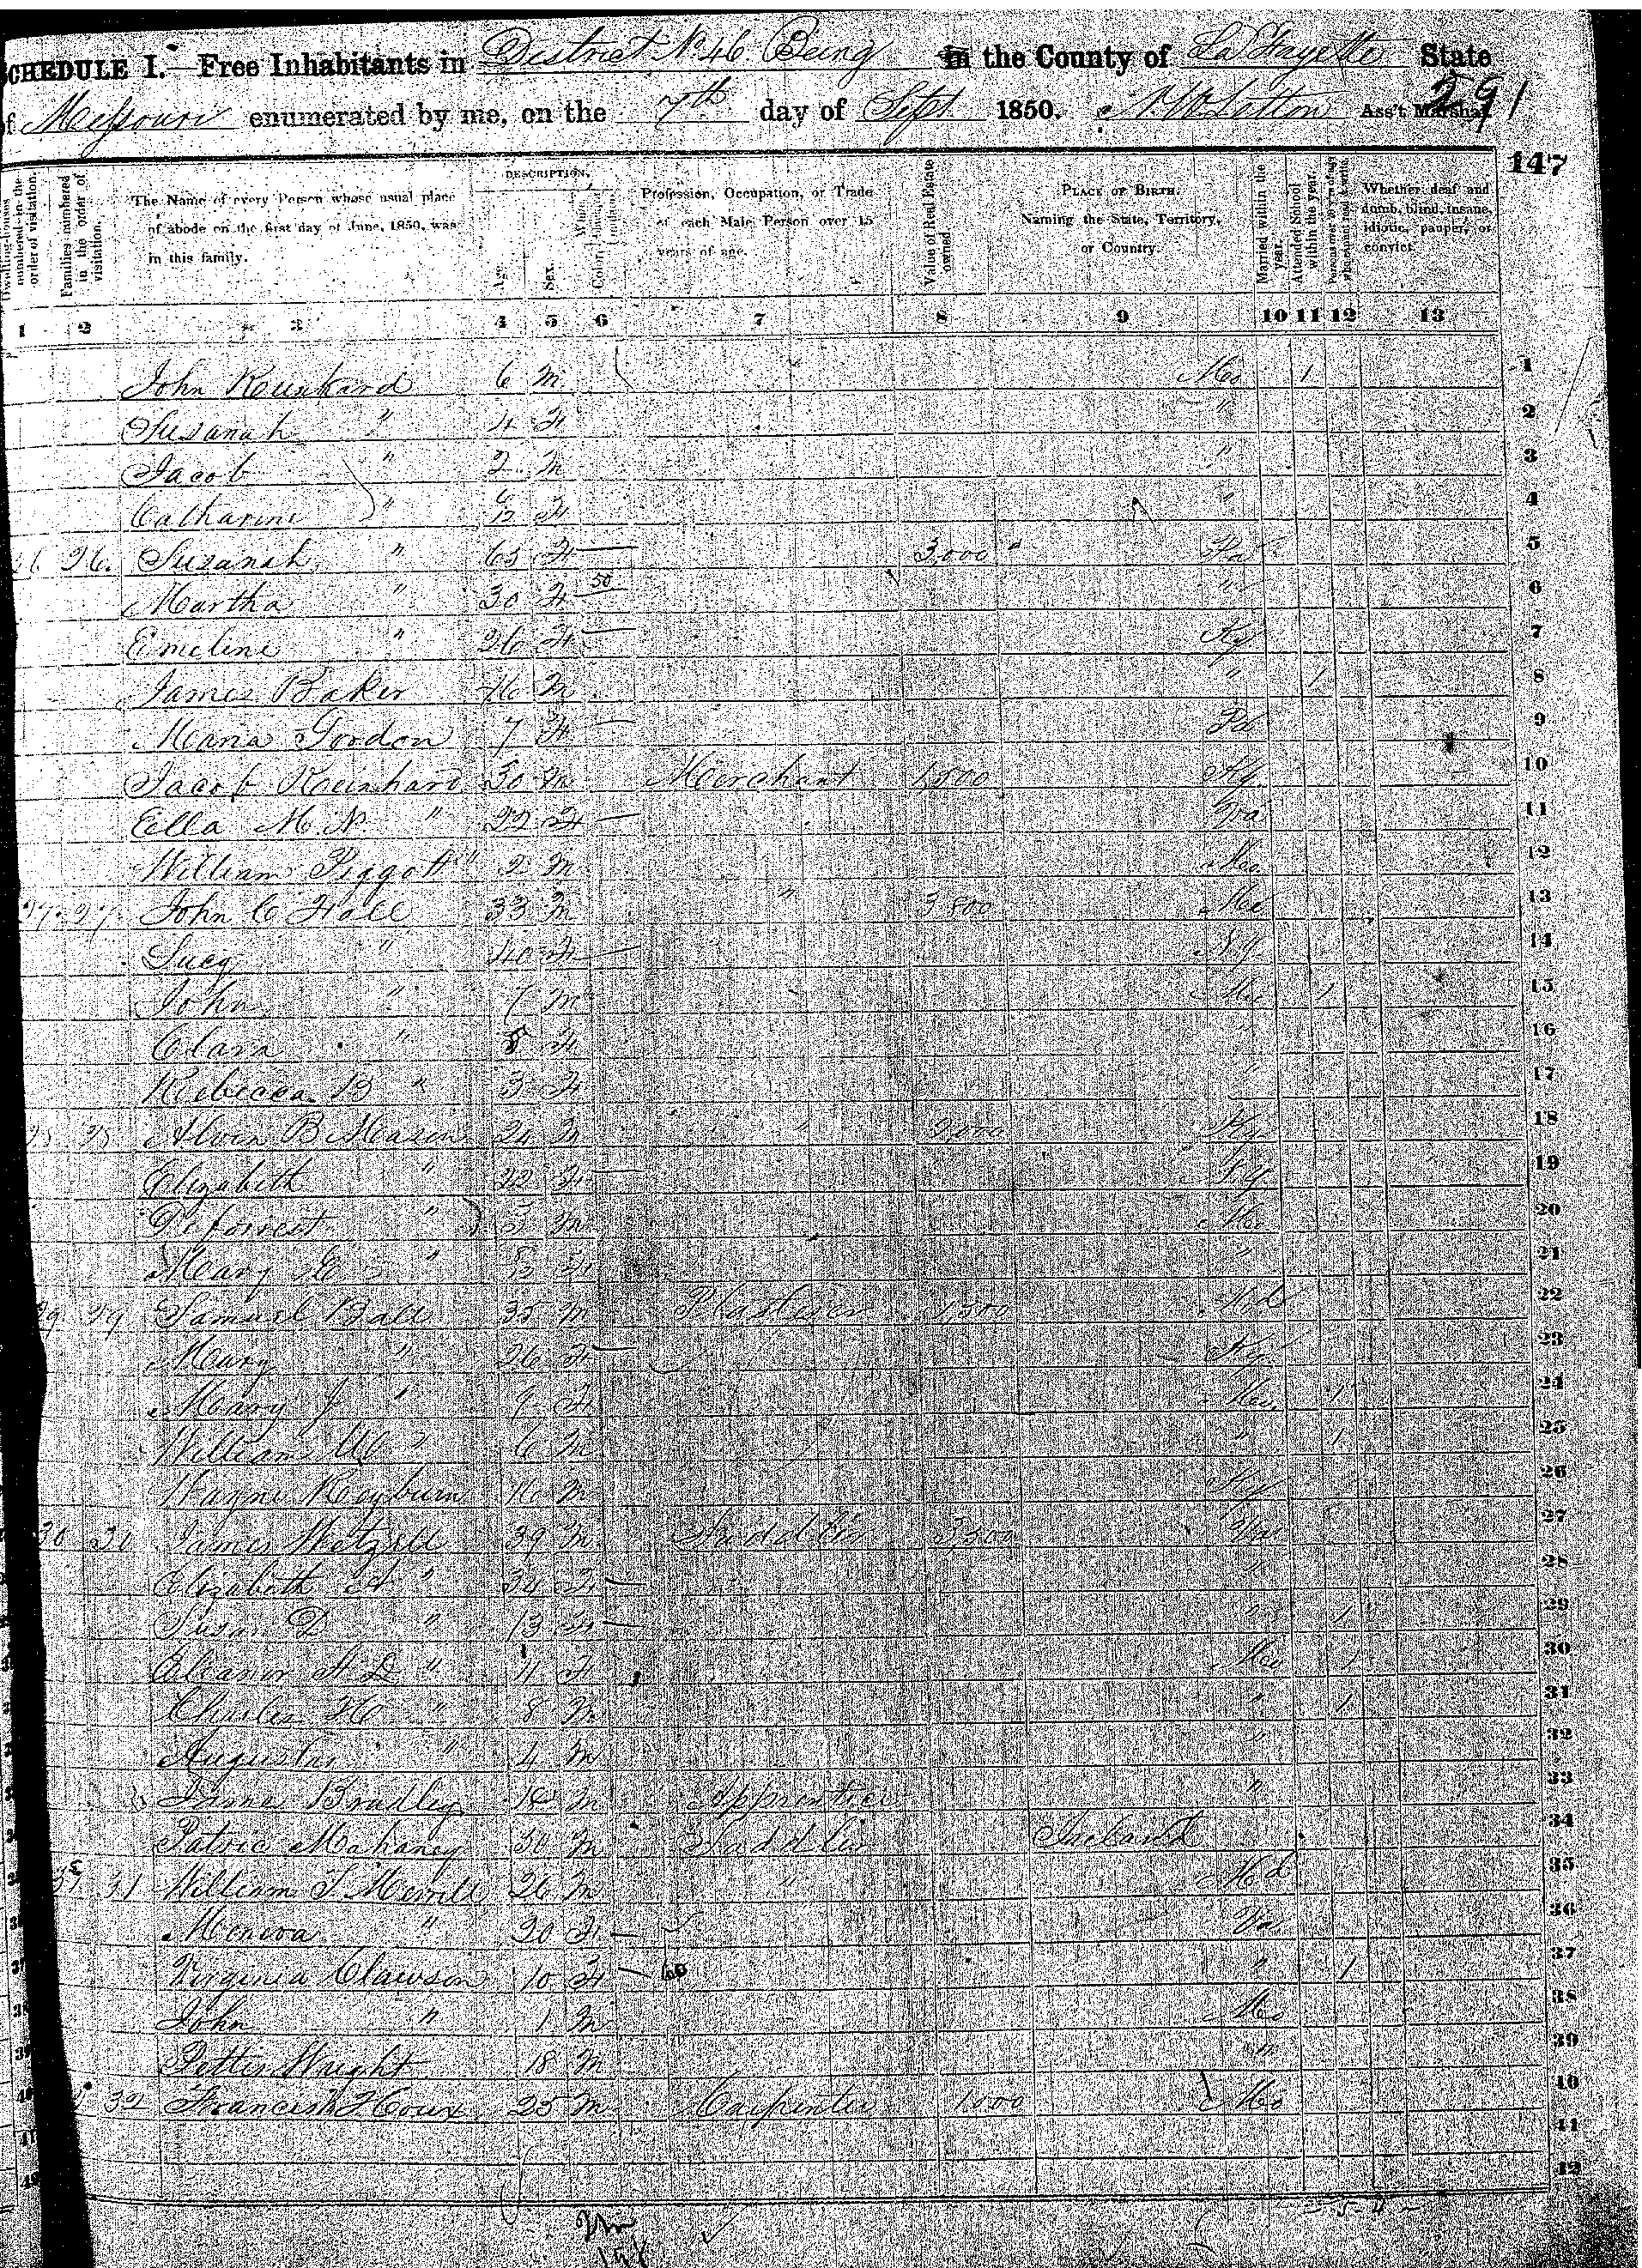 SCHEDULE I.—Free Inhabitants in District No 46 Being in the County of La Fayette State
of Missouri enumerated by me, on the 7th day of Sept 1850. Ass't Marshal.
291
147
Dwelling-houses numbered in the order of visitation.
Families numbered in the order of visitation.
The Name of every Person whose usual place of abode on the first day of June, 1850, was in this family.
DESCRIPTION.
Age.
Sex.
Profession, Occupation, or Trade of each Male Person over 15 years of age.
Value of Real Estate owned
PLACE OF BIRTH. Naming the State, Territory, or Country.
Married within the year.
Attended School within the year.
Whether deaf and dumb, blind, insane, idiotic, pauper, or convict.
1 2 3 4 5 6 7 8 9 10 11 12 13
John 6 M Mo 1 1
Susanah " 4 F " 2
Jacob " 2 M " 3
Catharine " 6/12 F " 4
26. Susanah " 65 F 3,000 Pa 5
Martha " 30 F " 6
Emeline " 26 F Ky 7
James Baker 16 M " 1 8
Maria Gordon 7 F Pa 9
Jacob 30 M Merchant 1,500 Ky 10
Ella M. N. " 22 F Va 11
William Piggott " 2 M Mo 12
27. 27. John C Hall 33 M " 3 800 13
Lucy " 40 F 14
John " 7 M Mo 1 15
Clara " 5 F " 16
Rebecca B " 3 F " 17
Alvin B Mason M " 2,000 Ky 18
Elizabeth " 22 F Ky 19
Deforrest " 3 M Mo 20
Mary E " F " 21
29 29 Samuel Ball 35 M Plasterer 1,500 Md 22
Mary " 26 F Ky 23
Mary J " 9 F Mo 1 24
William W " 6 M " 1 25
Wayne Reyburn 16 M Ky 26
30 30 James Wetzell 39 M Saddler 3,500 Va 27
Elizabeth A " 34 F " 28
Susan D " 13 F " 1 29
Eleanor A D " 11 F Mo 1 30
Charles H " 8 M " 1 31
Augustus " 4 M " 32
Bradley M Apprentice " 33
Patric Mahaney 30 M Saddler Ireland 34
31 William T Merrill 26 M " Md 35
" 20 F Va 36
Virginia Clawson 10 F " 1 37
John " 1 M Mo 38
Petter Wright 18 M " 39
32 Francis Houx 25 M Carpenter 1000 Mo 40
41
42